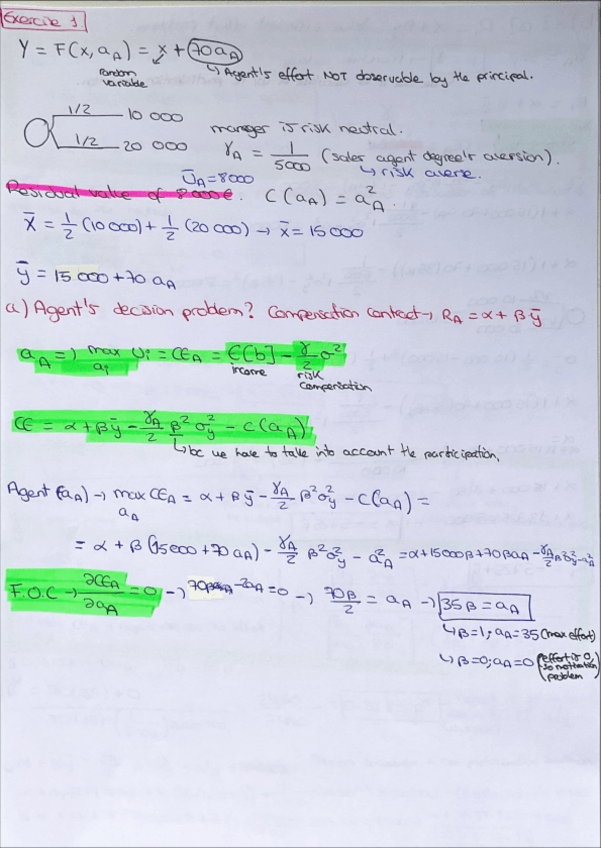 Exercise 1
Y = F(x, a_A) = x + 70a_A
random variable
↳ Agent's effort NOT observable by the principal.
1/2 10 000
1/2 20 000
manager is risk neutral.
γ_A = 1/5000 (sales agent degree's aversion).
↳ risk averse.
Ū_A = 8000
Residual value of 8000€. C(a_A) = a_A^2.
X̄ = 1/2 (10 000) + 1/2 (20 000) → x̄ = 15 000
ȳ = 15 000 + 70 a_A
a) Agent's decision problem? Compensation contract → R_A = α + β ȳ
a_A ⇒ max_{a_i} U_i = CE_A = E[b] - γ/2 σ^2
income
risk compensation
CE = α + β ȳ - γ_A/2 β^2 σ_y^2 - C(a_A)
↳ bc we have to take into account the participation,
Agent (a_A) → max_{a_A} CE_A = α + β ȳ - γ_A/2 β^2 σ_y^2 - C(a_A) =
= α + β (15 000 + 70 a_A) - γ_A/2 β^2 σ_y^2 - a_A^2 = α + 15000β + 70βa_A - γ_A/2 β^2 σ_y^2 - a_A^2
F.O.C → ∂CE_A/∂a_A = 0 → 70β - 2a_A = 0 → 70β/2 = a_A → 35β = a_A
↳ β = 1; a_A = 35 (max effort)
↳ β = 0; a_A = 0 (effort is 0, so motivation problem)